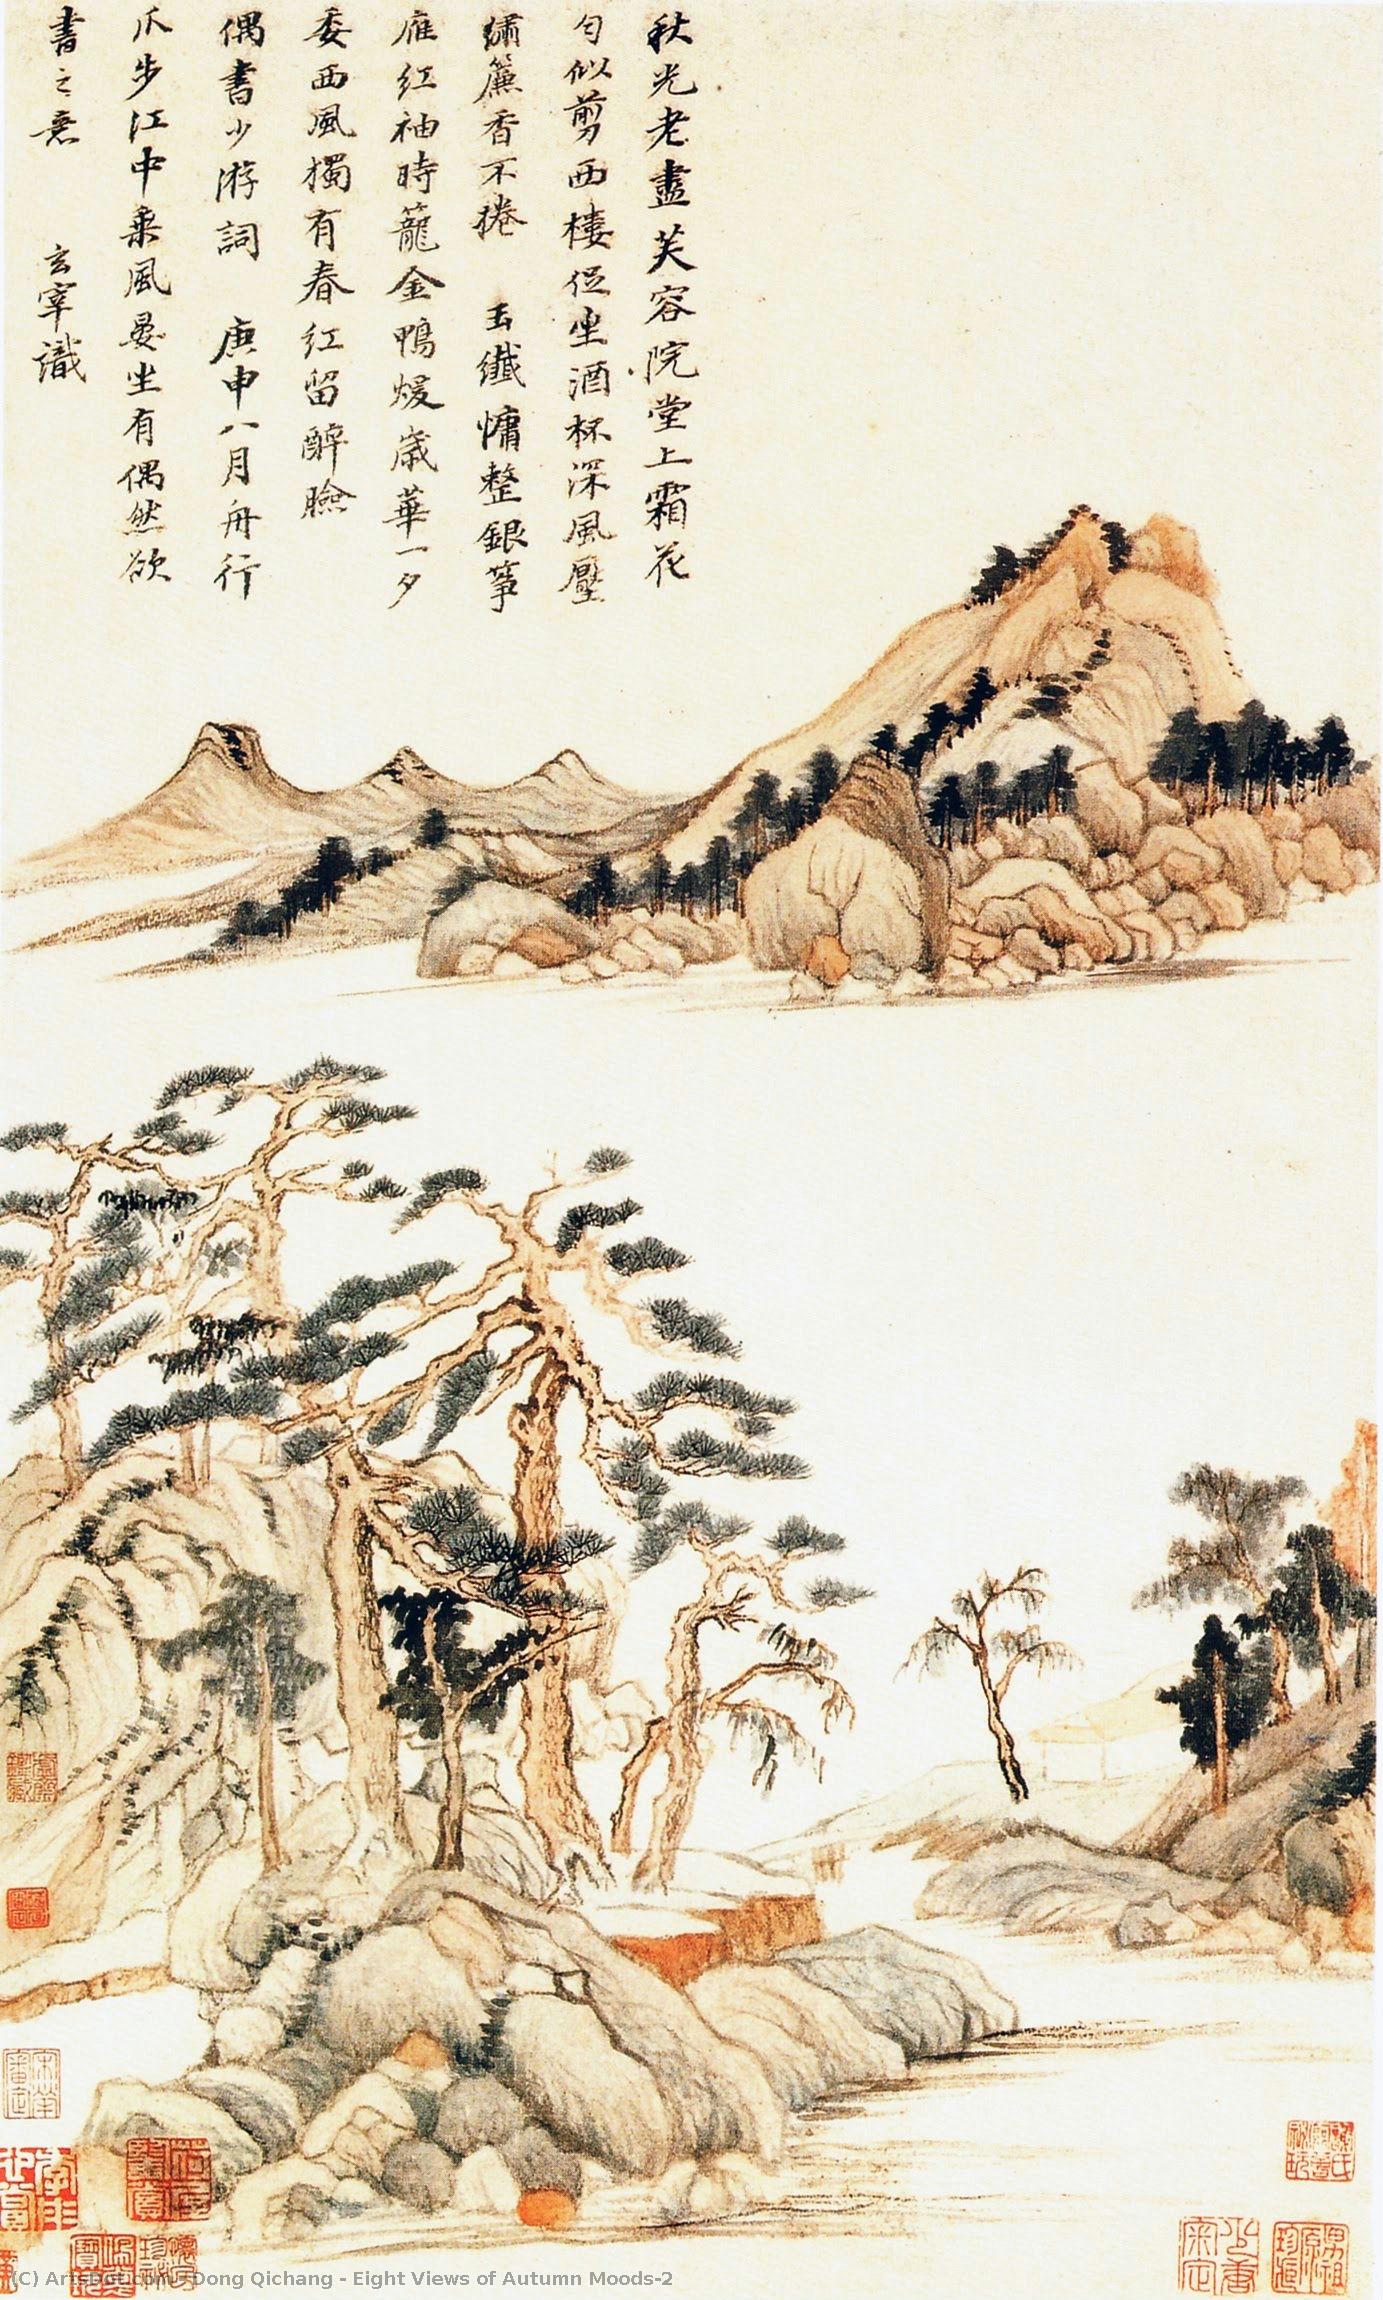 秋光老盡芙容院堂上霜花
勻似剪西樓促坐酒杯深風壓
繡簾香不捲 玉纖慵整銀箏
雁紅袖時籠金鴨煖歲華一夕
委西風獨有春紅留醉臉
偶書少游詞 庚申八月舟行
瓜步江中乘風晏坐有偶然欲
書之意 玄宰識
(C) ArtsDot.com - Dong Qichang - Eight Views of Autumn Moods-2